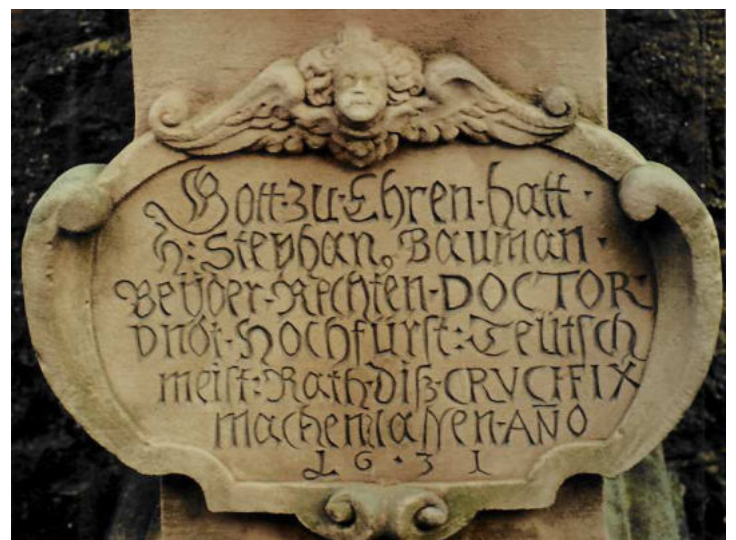 Gott·zu·Ehren·hatt·
H:Stephan,Bauman·
Beÿder·Rechten·DOCTOR·
vndt·Hochfürst:Teütsch
meist:Rath·diß·CRVCIFIX
machen·laßen·AÑO
16·31